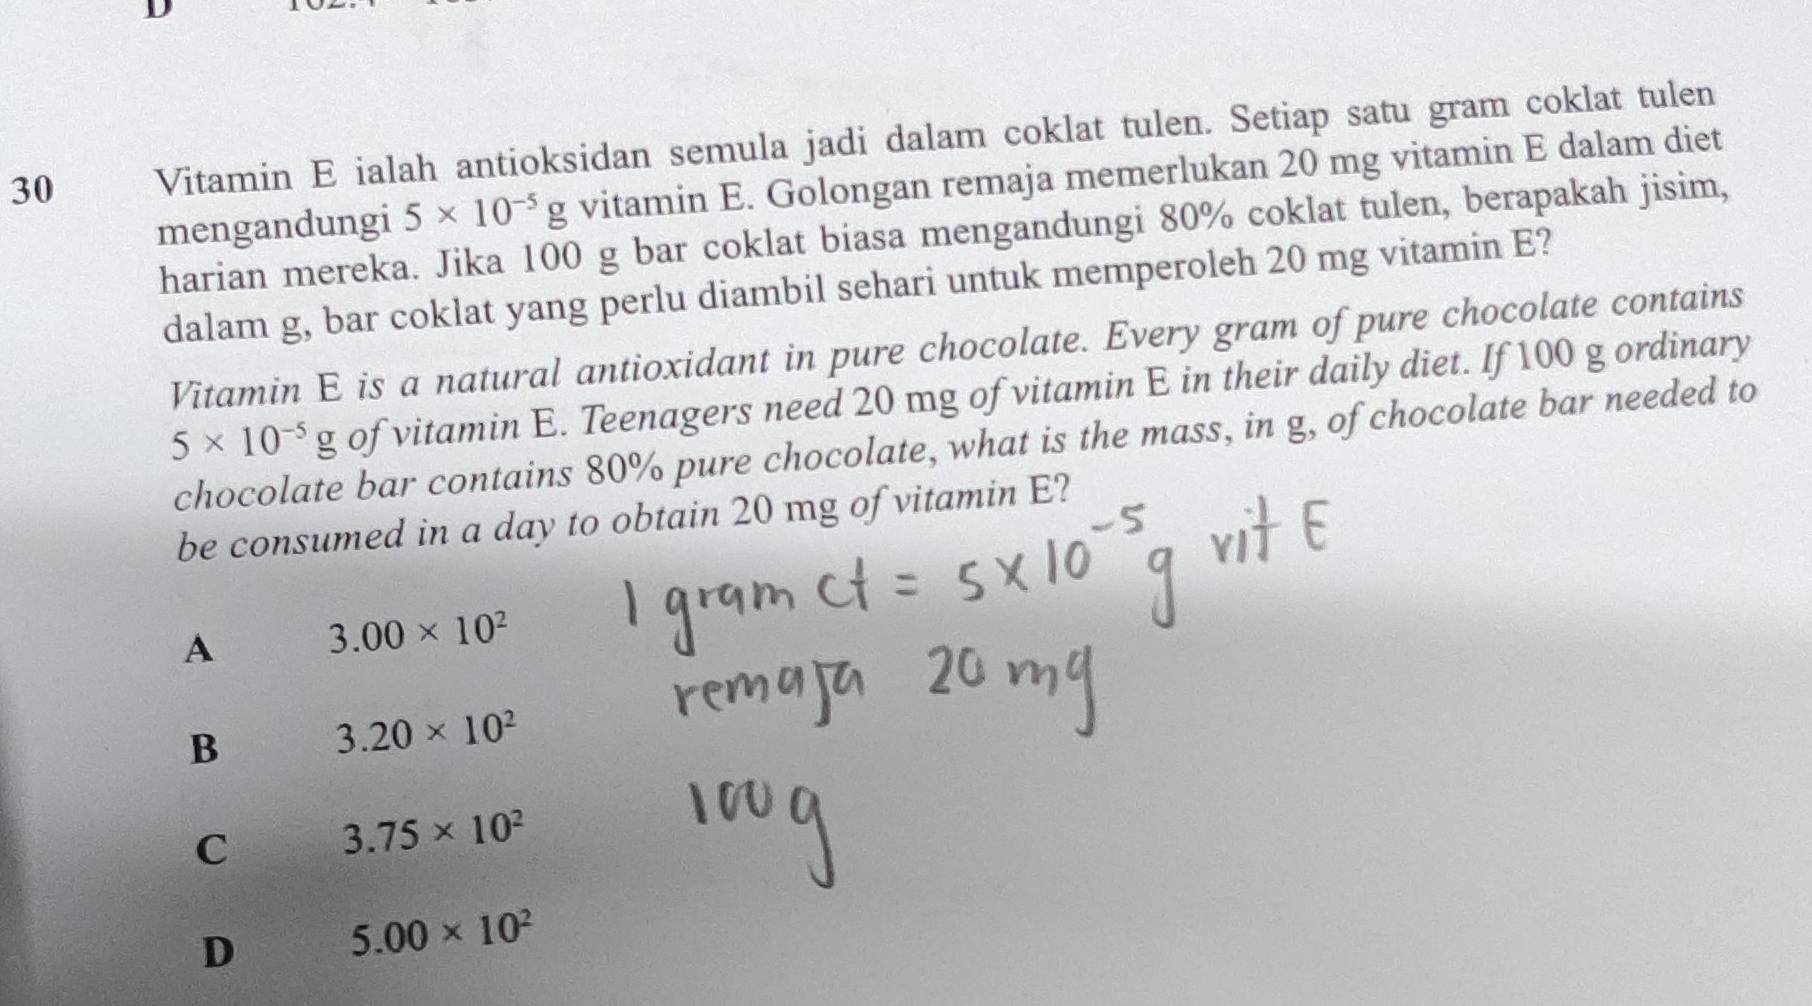 D
30 Vitamin E ialah antioksidan semula jadi dalam coklat tulen. Setiap satu gram coklat tulen
mengandungi 5 × 10⁻⁵ g vitamin E. Golongan remaja memerlukan 20 mg vitamin E dalam diet
harian mereka. Jika 100 g bar coklat biasa mengandungi 80% coklat tulen, berapakah jisim,
dalam g, bar coklat yang perlu diambil sehari untuk memperoleh 20 mg vitamin E?
Vitamin E is a natural antioxidant in pure chocolate. Every gram of pure chocolate contains
5 × 10⁻⁵ g of vitamin E. Teenagers need 20 mg of vitamin E in their daily diet. If 100 g ordinary
chocolate bar contains 80% pure chocolate, what is the mass, in g, of chocolate bar needed to
be consumed in a day to obtain 20 mg of vitamin E?
1 gram ct = 5 × 10⁻⁵ g vit E
A 3.00 × 10²
remaja 20 mg
B 3.20 × 10²
100 g
C 3.75 × 10²
D 5.00 × 10²